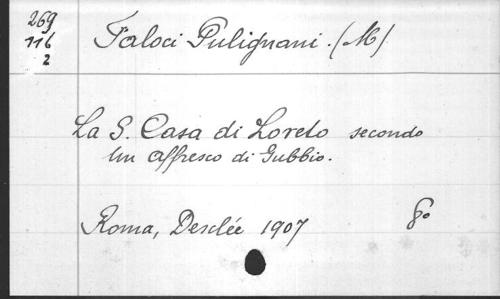 269
116
2
Faloci Pulignani. (M)
La S. Casa di Loreto secondo
un affresco di Gubbio.
Roma, Desclée 1907 8°